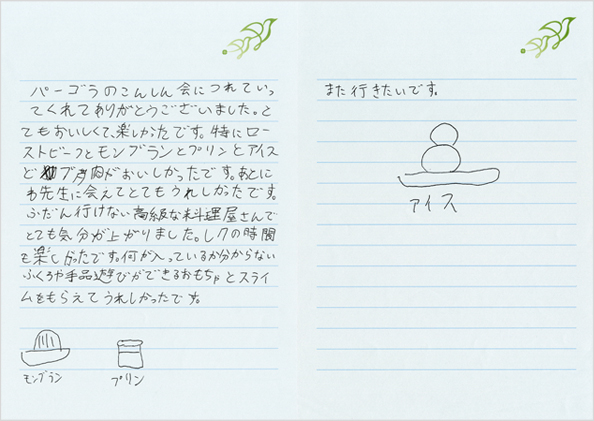 パーゴラのこんしん会につれていっ
てくれてありがとうございました。と
てもおいしくて、楽しかったです。特にロー
ストビーフとモンブランとプリンとアイス
とブタ肉がおいしかったです。あとに
も先生に会えてとてもうれしかったです。
ふだん行けない高級な料理屋さんで
とても気分が上がりました。レクの時間
も楽しかったです。何が入っているか分からない
ふくろや手品遊びができるおもちゃとスライ
ムをもらえてうれしかったです。
モンブラン
プリン
また行きたいです。
アイス